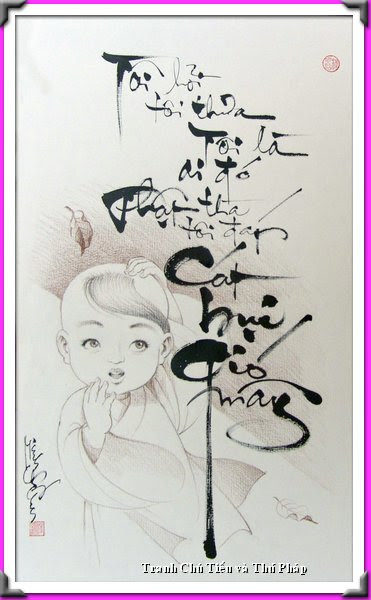 Tôi hỏi
tôi thưa
Tôi là
ai đó
Thật thà
tôi đáp
Cát
bụi
Gió
mây
Tranh Chú Tiểu và Thú Pháp